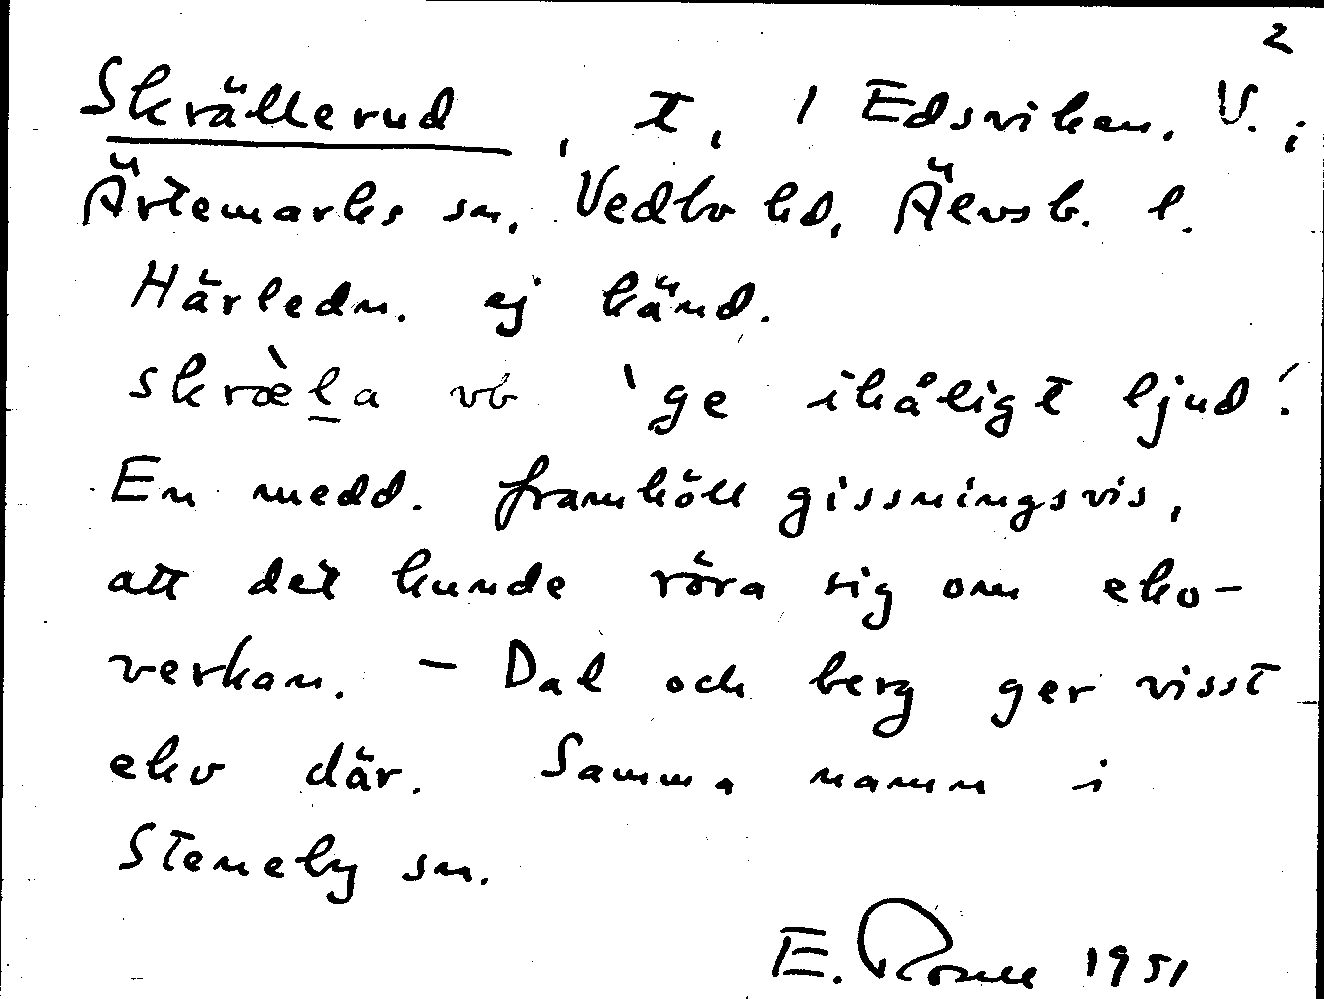 2
Skrällerud, t, 1 Edsviken. V. i
Ärtemarks sn, Vedbo hd, Älvsb. l.
Härledn. ej känd.
skræ̀l̲a vb 'ge ihåligt ljud'.
En medd. framhöll gissningsvis,
att det kunde röra sig om eko-
verkan. – Dal och berg ger visst
eko där. Samma namn i
Steneby sn.
E. 1951